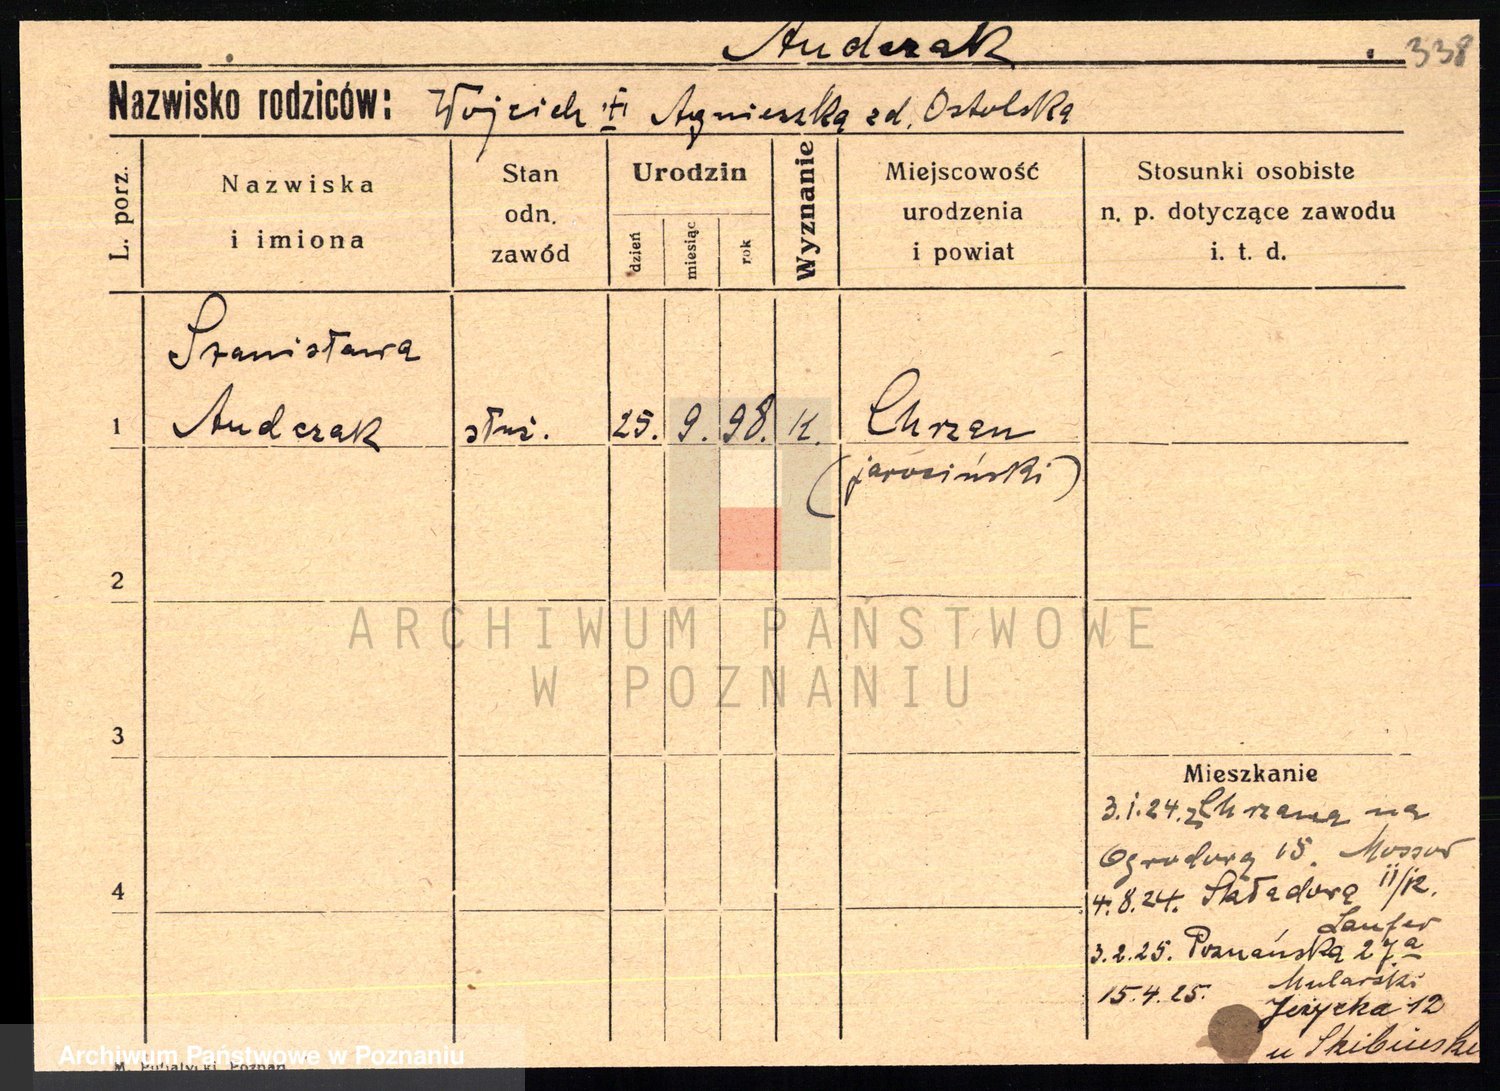 Andrzak
338
Nazwisko rodziców: Wojciech Agnieszka zd. Ostolska
L. porz.
Nazwiska
i imiona
Stan
odn.
zawód
Urodzin
dzień
miesiąc
rok
Wyznanie
Miejscowość
urodzenia
i powiat
Stosunki osobiste
n. p. dotyczące zawodu
i. t. d.
Stanisława
1 Andrzak służ. 25. 9. 98. k. Chrzan
(jarociński)
2
ARCHIWUM PAŃSTWOWE
W POZNANIU
3
Mieszkanie
3.1.24. z Chrzana na
Ogrodową 15.
4
4.8.24. Składową
Laufer
3.2.25. Poznańska 27a
Mularski
15.4.25. Jeżycka 12
u Skibiński
Archiwum Państwowe w Poznaniu